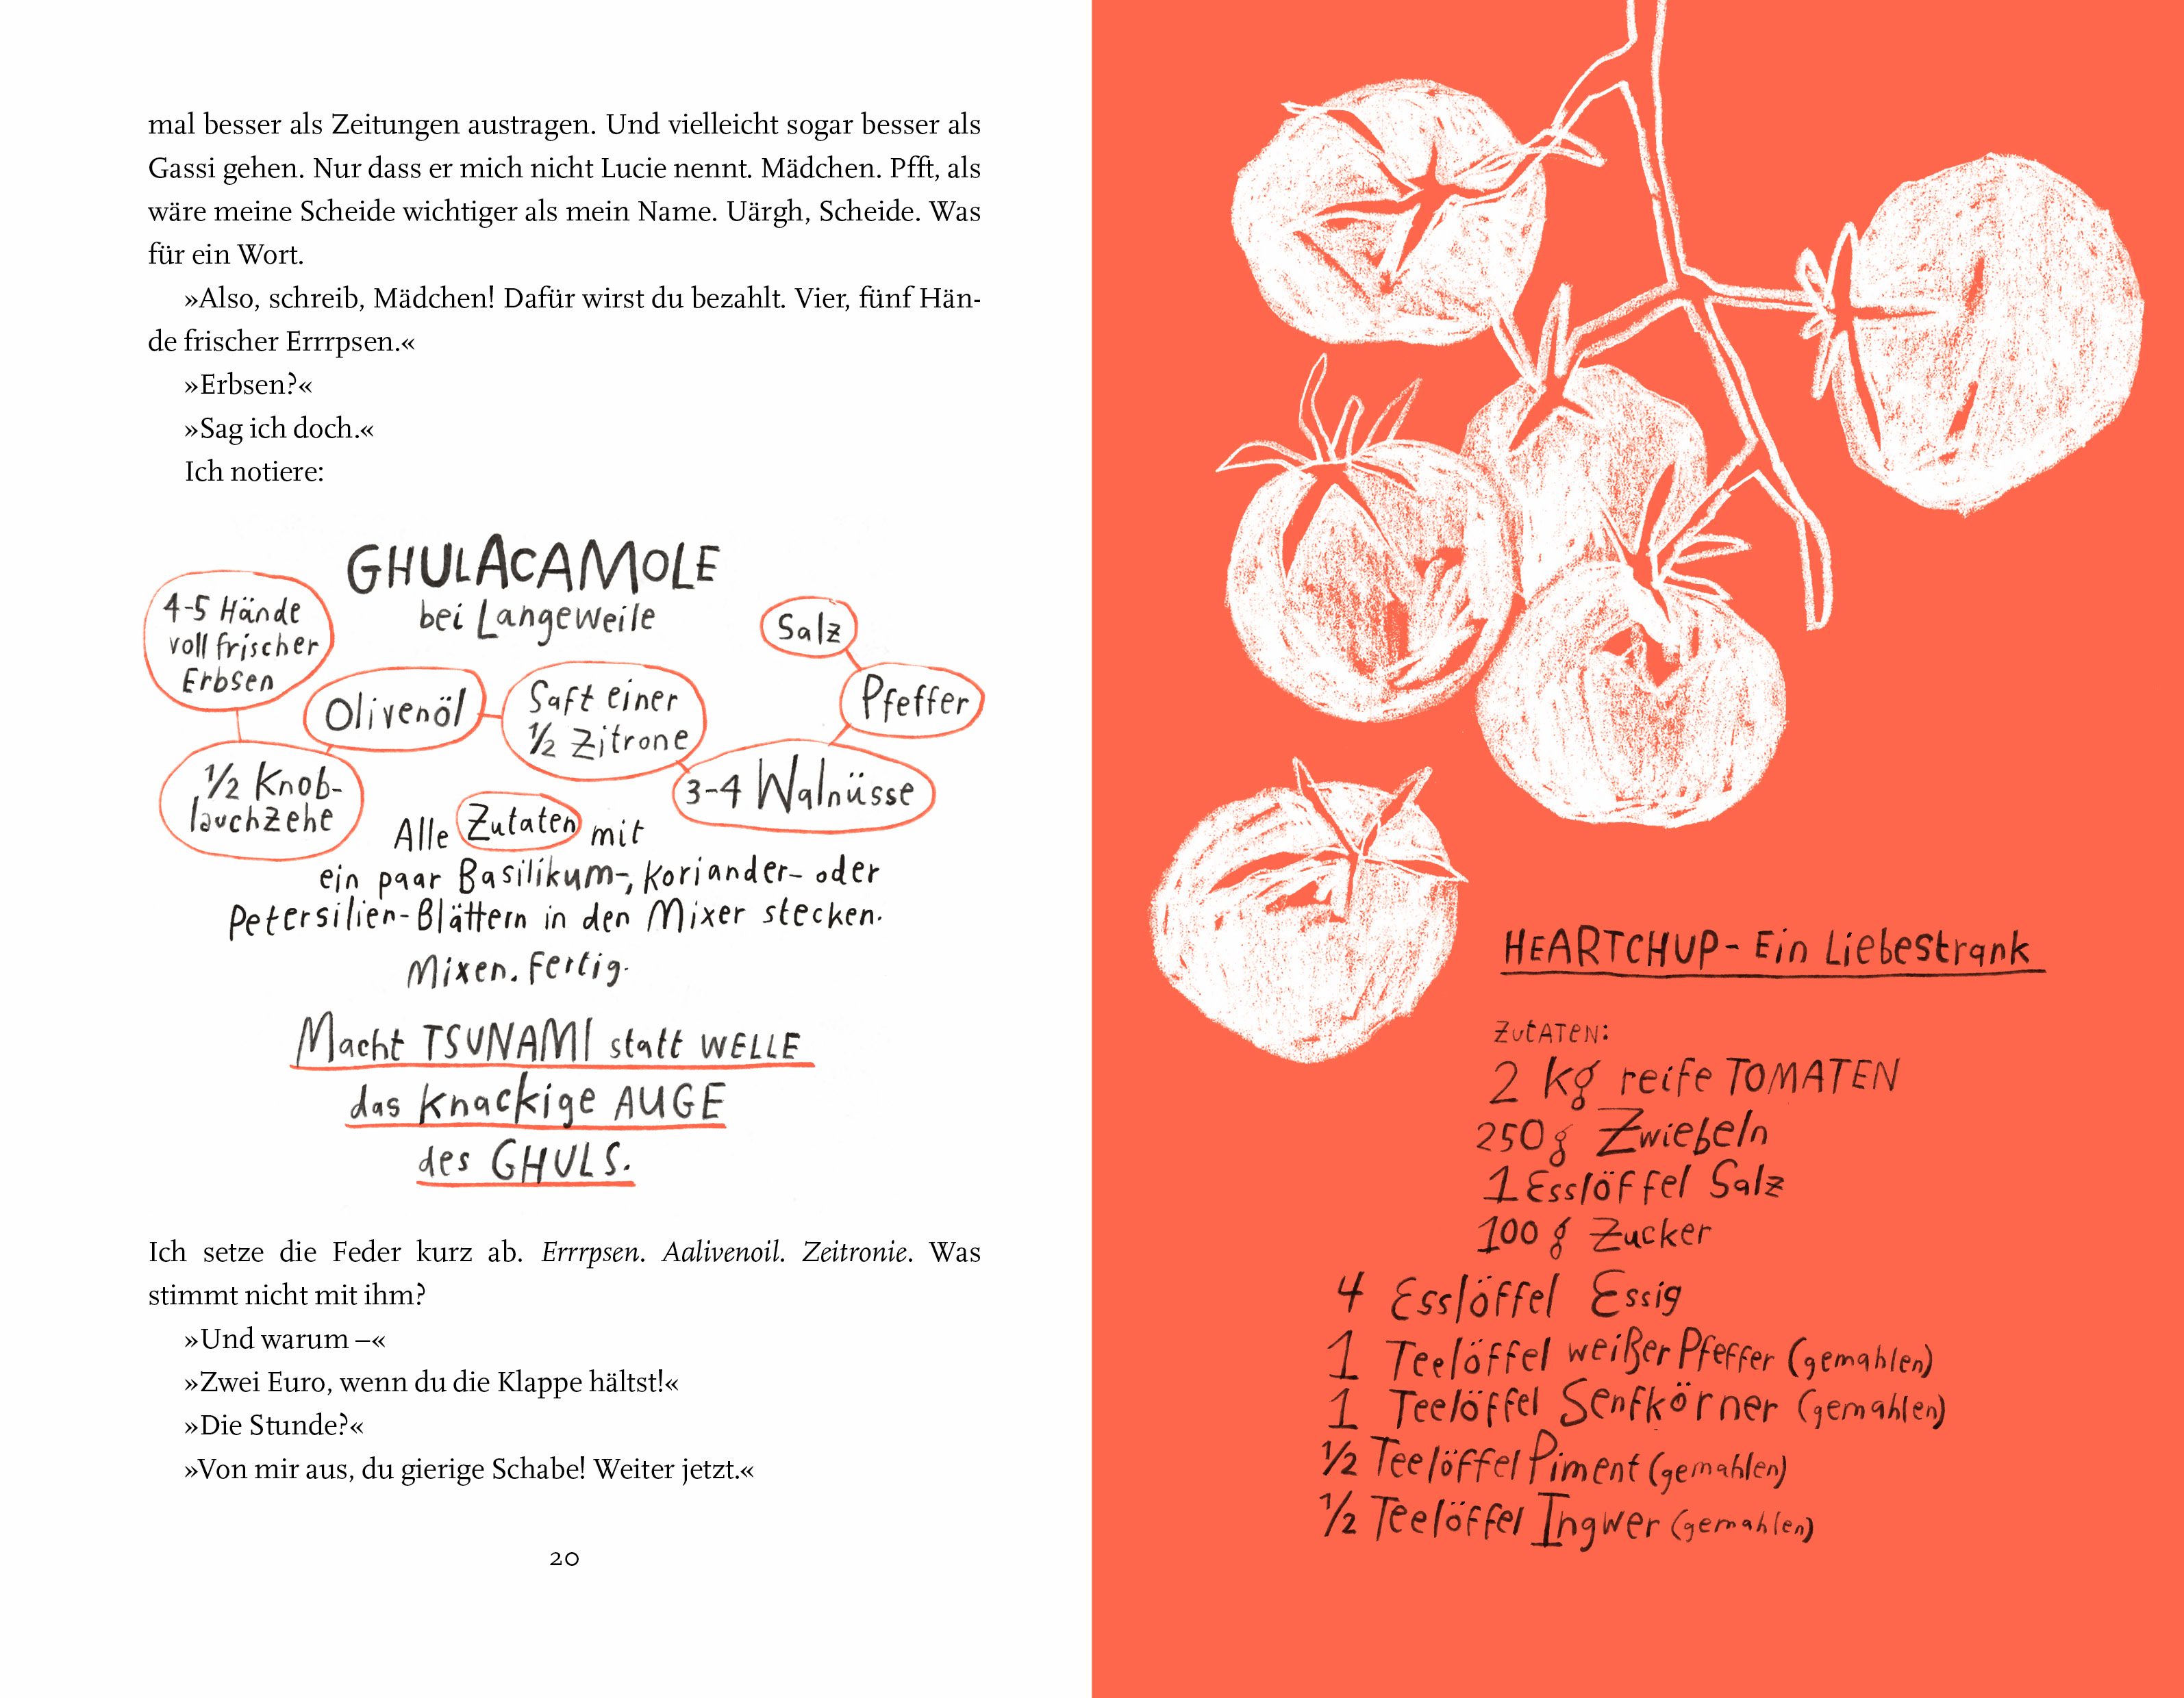 mal besser als Zeitungen austragen. Und vielleicht sogar besser als
Gassi gehen. Nur dass er mich nicht Lucie nennt. Mädchen. Pfft, als
wäre meine Scheide wichtiger als mein Name. Uärgh, Scheide. Was
für ein Wort.
»Also, schreib, Mädchen! Dafür wirst du bezahlt. Vier, fünf Hän-
de frischer Errrpsen.«
»Erbsen?«
»Sag ich doch.«
Ich notiere:
GHULACAMOLE
bei Langeweile
4-5 Hände
voll frischer
Erbsen
Olivenöl
Saft einer
½ Zitrone
Salz
Pfeffer
½ Knob-
lauchzehe
3-4 Walnüsse
Alle Zutaten mit
ein paar Basilikum-, Koriander- oder
Petersilien-Blättern in den Mixer stecken.
Mixen. Fertig.
Macht TSUNAMI statt WELLE
das knackige AUGE
des GHULS.
Ich setze die Feder kurz ab. Errrpsen. Aalivenoil. Zeitronie. Was
stimmt nicht mit ihm?
»Und warum –«
»Zwei Euro, wenn du die Klappe hältst!«
»Die Stunde?«
»Von mir aus, du gierige Schabe! Weiter jetzt.«
20
HEARTCHUP - Ein Liebestrank
ZUTATEN:
2 kg reife TOMATEN
250 g Zwiebeln
1 Esslöffel Salz
100 g Zucker
4 Esslöffel Essig
1 Teelöffel weißer Pfeffer (gemahlen)
1 Teelöffel Senfkörner (gemahlen)
½ Teelöffel Piment (gemahlen)
½ Teelöffel Ingwer (gemahlen)